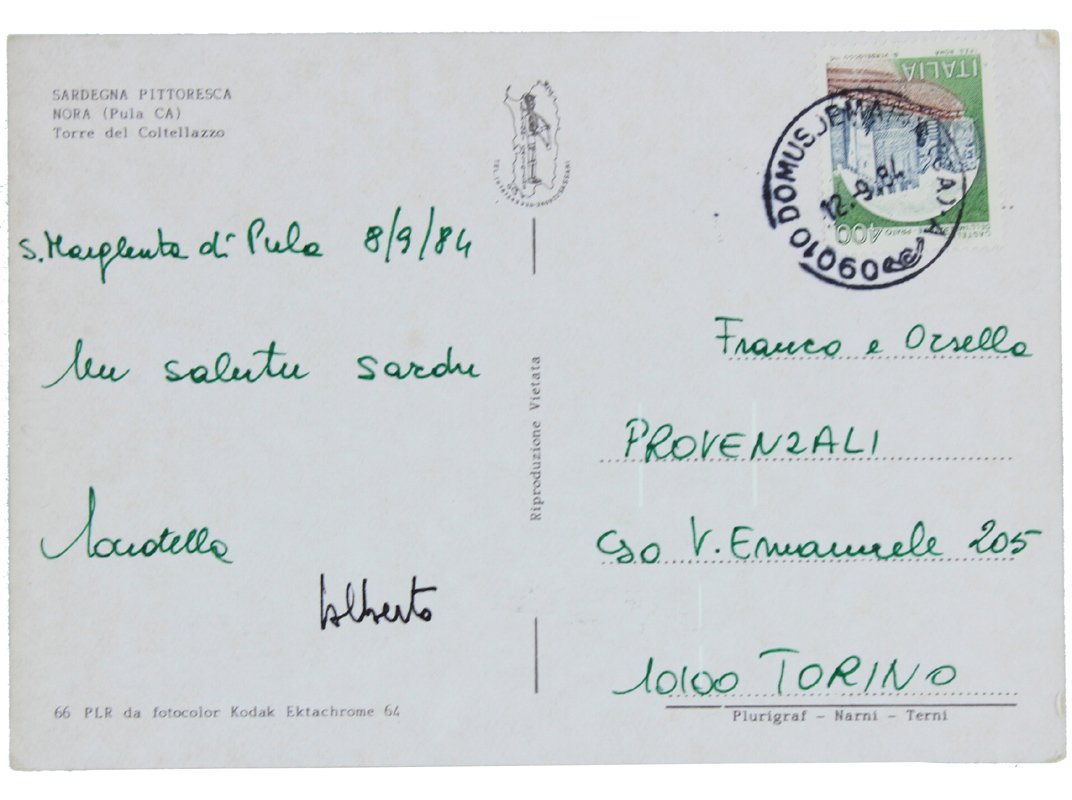 SARDEGNA PITTORESCA
NORA (Pula CA)
Torre del Coltellazzo
S. Margherita di Pula 8/9/84
Un salutu sardu
Alberto
66 PLR da fotocolor Kodak Ektachrome 64
Riproduzione Vietata
ITALIA
400
09010 DOMUSDEMARIA (CA)
12.9.84
Franco e Orsella
PROVENZALI
Cso V. Emanuele 205
10100 TORINO
Plurigraf - Narni - Terni